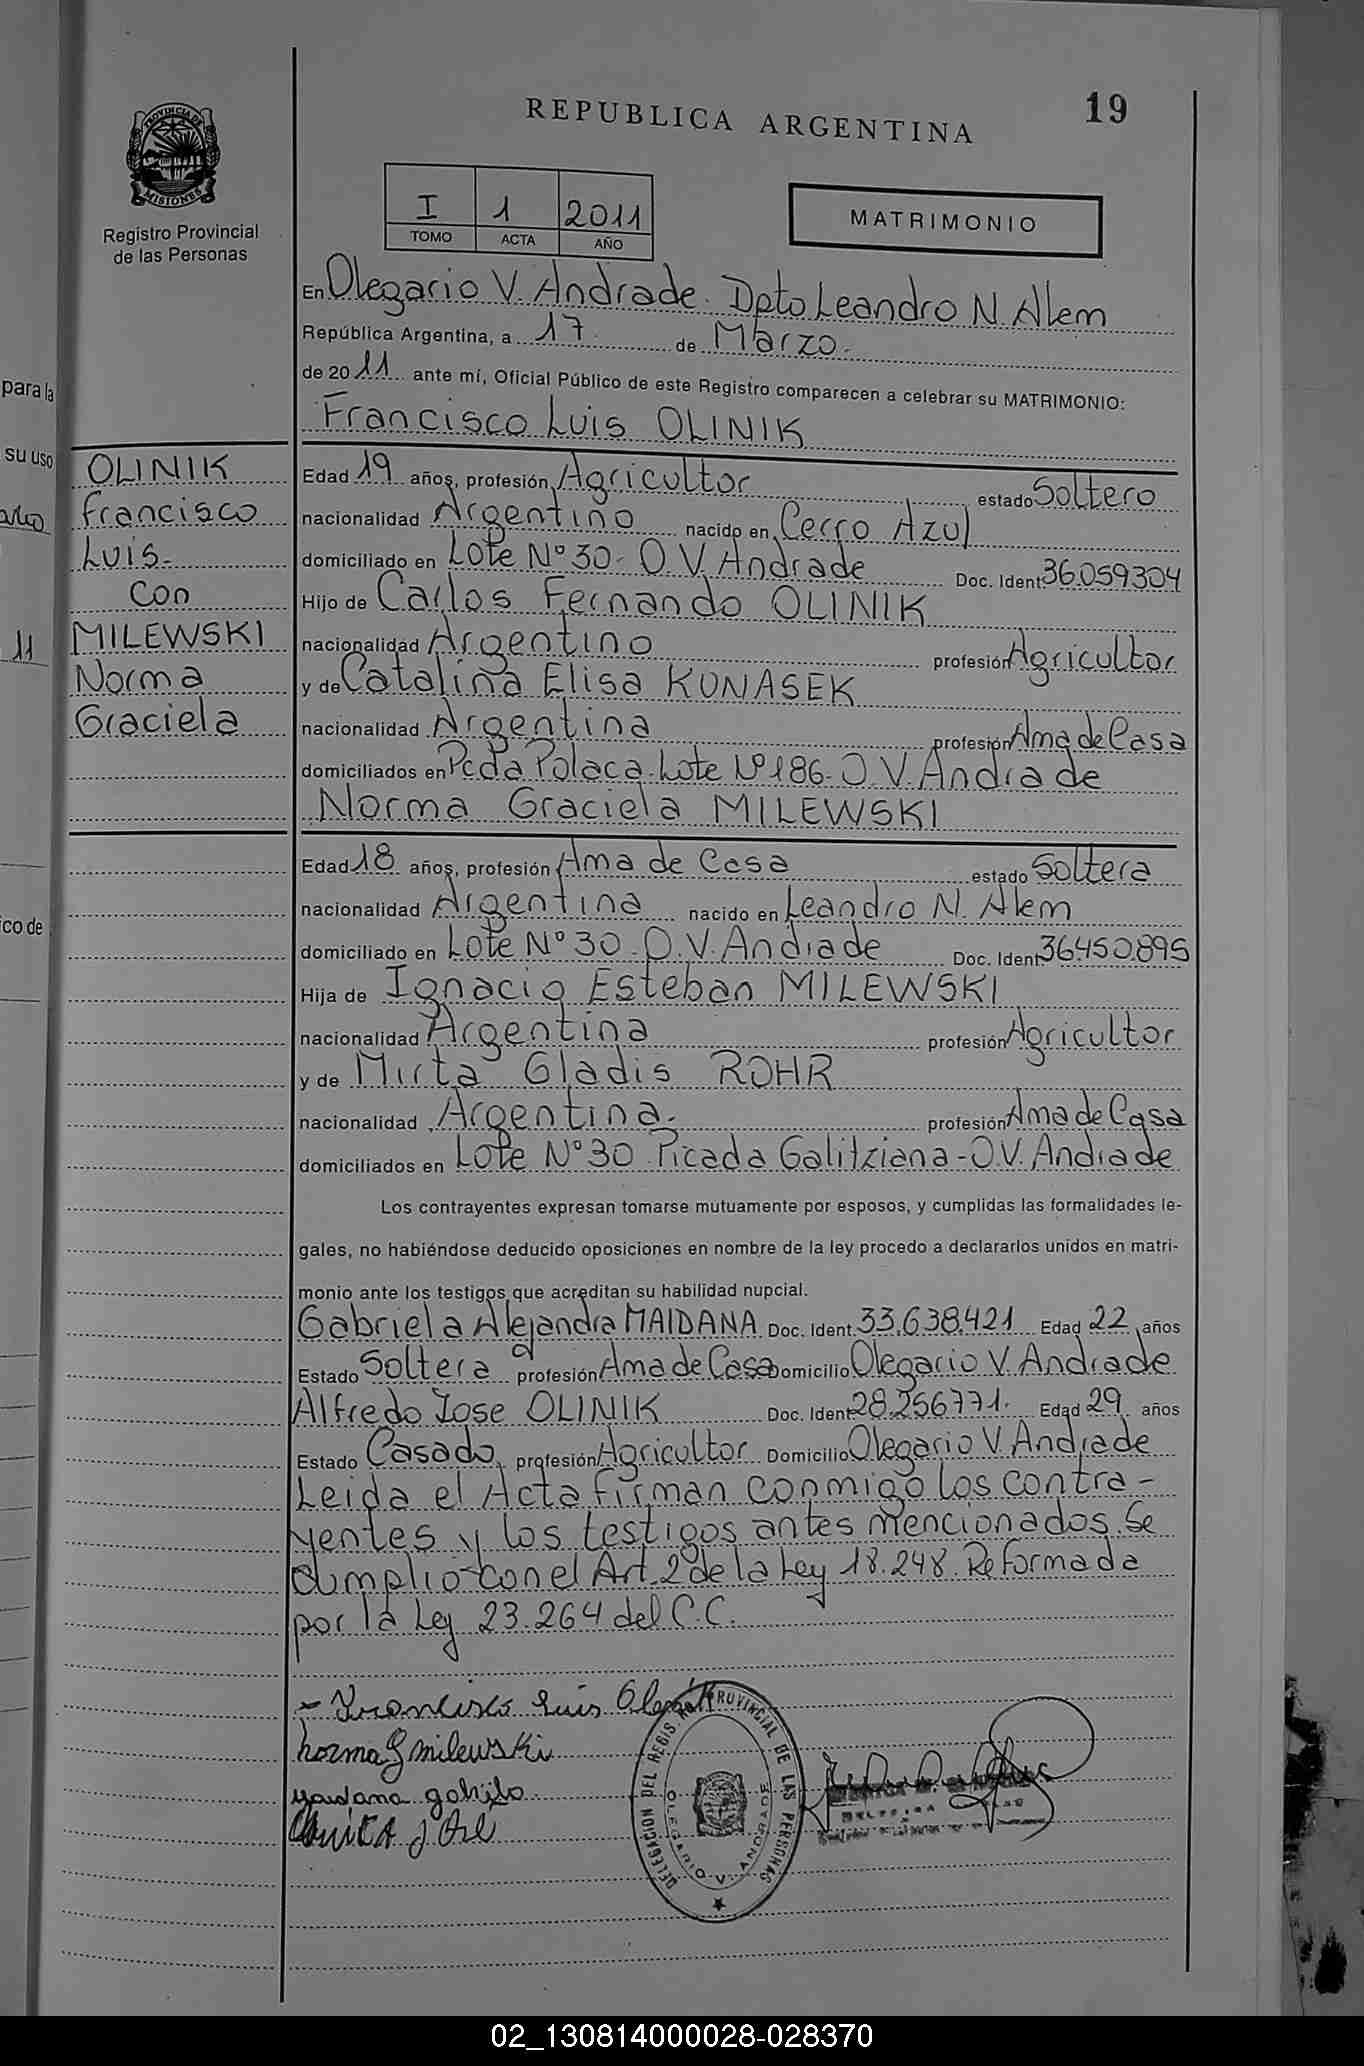 REPUBLICA ARGENTINA
19
PROVINCIA DE
MISIONES
Registro Provincial
de las Personas
I 1 2011
TOMO ACTA AÑO
MATRIMONIO
En Olegario V. Andrade. Dpto Leandro N. Alem
República Argentina, a 17 de Marzo.
de 2011 ante mí, Oficial Público de este Registro comparecen a celebrar su MATRIMONIO:
Francisco Luis OLINIK
para la
su uso
11
ico de
OLINIK
Francisco
Luis.
con
MILEWSKI
Norma
Graciela
Edad 19 años, profesión Agricultor estado Soltero
nacionalidad Argentino nacido en Cerro Azul
domiciliado en Lote Nº 30- O.V. Andrade Doc. Ident. 36.059304
Hijo de Carlos Fernando OLINIK
nacionalidad Argentino profesión Agricultor
y de Catalina Elisa KUNASEK
nacionalidad Argentina profesión Ama de Casa
domiciliados en Pcda Polaca. Lote Nº 186- O.V. Andrade
Norma Graciela MILEWSKI
Edad 18 años, profesión Ama de Casa estado Soltera
nacionalidad Argentina nacido en Leandro N. Alem
domiciliado en Lote Nº 30 - O.V. Andrade Doc. Ident. 36.450.895
Hija de Ignacio Esteban MILEWSKI
nacionalidad Argentina profesión Agricultor
y de Mirta Gladis ROHR
nacionalidad Argentina. profesión Ama de Casa
domiciliados en Lote Nº 30 Picada Galitziana - O.V. Andrade
Los contrayentes expresan tomarse mutuamente por esposos, y cumplidas las formalidades le-
gales, no habiéndose deducido oposiciones en nombre de la ley procedo a declararlos unidos en matri-
monio ante los testigos que acreditan su habilidad nupcial.
Gabriela Alejandra MAIDANA Doc. Ident. 33.638.421 Edad 22 años
Estado Soltera profesión Ama de Casa Domicilio Olegario V. Andrade
Alfredo Jose OLINIK Doc. Ident. 28.256771. Edad 29 años
Estado Casado profesión Agricultor Domicilio Olegario V. Andrade
Leida el Acta firman conmigo los contra-
yentes y los testigos antes mencionados. Se
cumplio con el Art. 2º de la Ley 18.248. Reformada
por la Ley 23.264 del C.C.
Francisco Luis Olinik
norma G milewski
DELEGACION DEL REGIS. PROVINCIAL DE LAS PERSONAS
OLEGARIO V. ANDRADE
02_130814000028-028370